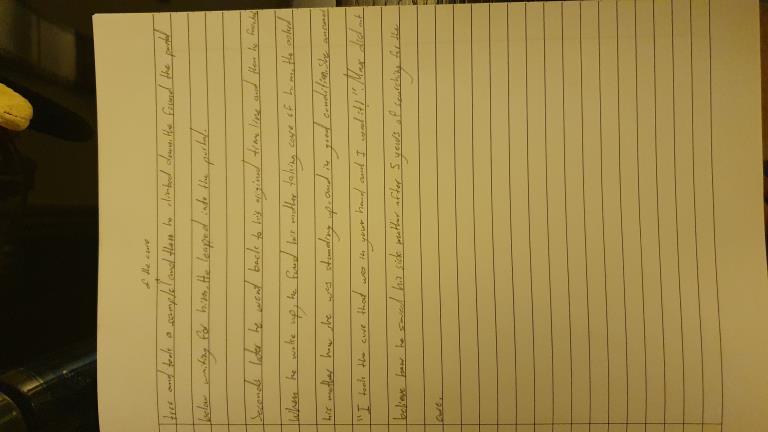 of the cure
tree and took a sample and then he climbed down. He found the portal
below waiting for him. He leapped into the portal.
Seconds later he went back to his original time line and then he
When he woke up, he found his mother taking care of him. He asked
his mother how she was standing up and in good condition. She
"I took the cure that was in your hand and I used it!". Max did not
believe how he saved his sick mother after 5 years of searching for the
cure.